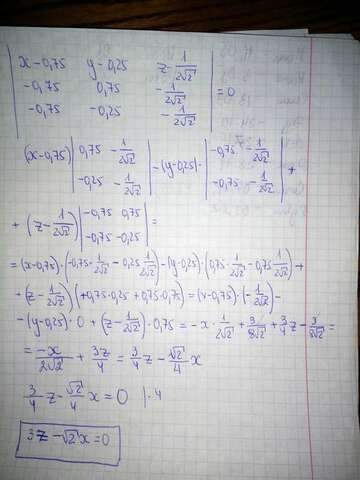 | x-0,75 y-0,25 z-1/(2√2) |
| -0,75 0,75 -1/(2√2) | =0
| -0,75 -0,25 -1/(2√2) |
(x-0,75) | 0,75 -1/(2√2) ; -0,25 -1/(2√2) | -(y-0,25)· | -0,75 -1/(2√2) ; -0,75 -1/(2√2) | +
+ (z-1/(2√2)) | -0,75 0,75 ; -0,75 -0,25 | =
=(x-0,75)·(-0,75·1/(2√2) -0,25 1/(2√2)) -(y-0,25)·(0,75·1/(2√2) -0,75 1/(2√2)) +
+(z-1/(2√2))(+0,75·0,25+0,75·0,75) = (x-0,75)·(-1/(2√2)) -
-(y-0,25)·0 + (z-1/(2√2))·0,75 = -x·1/(2√2) + 3/(8√2) + 3/4 z - 3/(8√2) =
= -x/(2√2) + 3z/4 = 3/4 z - √2/4 x
3/4 z - √2/4 x = 0 |·4
3z - √2x = 0